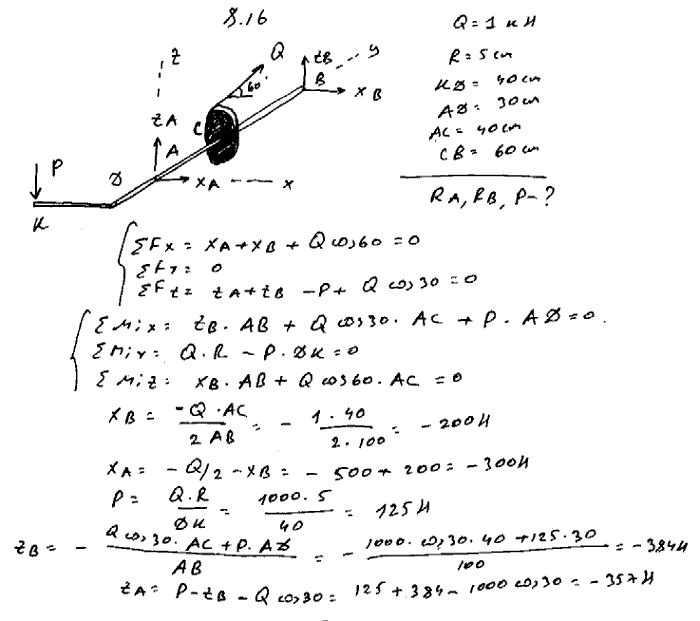 8.16
Q = 1 кН
R = 5 cm
KD = 40 cm
AD = 30 cm
AC = 40 cm
CB = 60 cm
RA, RB, P - ?
z
Q
60°
zB
B
y
xB
zA
A
C
P
D
xA
x
K
ΣFx = xA + xB + Q cos 60 = 0
ΣFy = 0
ΣFz = zA + zB - P + Q cos 30 = 0
ΣMix = zB · AB + Q cos 30 · AC + P · AD = 0.
ΣMiy = Q.R - P.DK = 0
ΣMiz = xB · AB + Q cos 60 · AC = 0
xB = -Q · AC / 2 AB = - 1 · 40 / 2 · 100 = - 200 H
xA = - Q/2 - xB = - 500 + 200 = - 300 H
P = Q.R / DK = 1000 · 5 / 40 = 125 H
zB = - Q cos 30 · AC + P · AD / AB = - 1000 · cos 30 · 40 + 125 · 30 / 100 = - 384 H
zA = P - zB - Q cos 30 = 125 + 384 - 1000 cos 30 = - 357 H